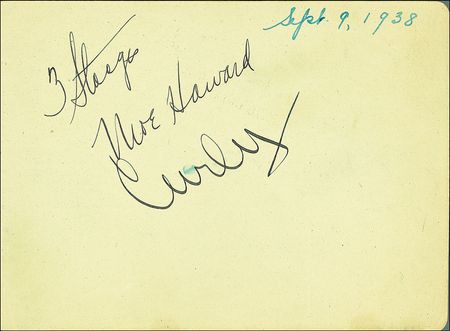 Sept. 9, 1938
3 Stooges
Moe Howard
Curley